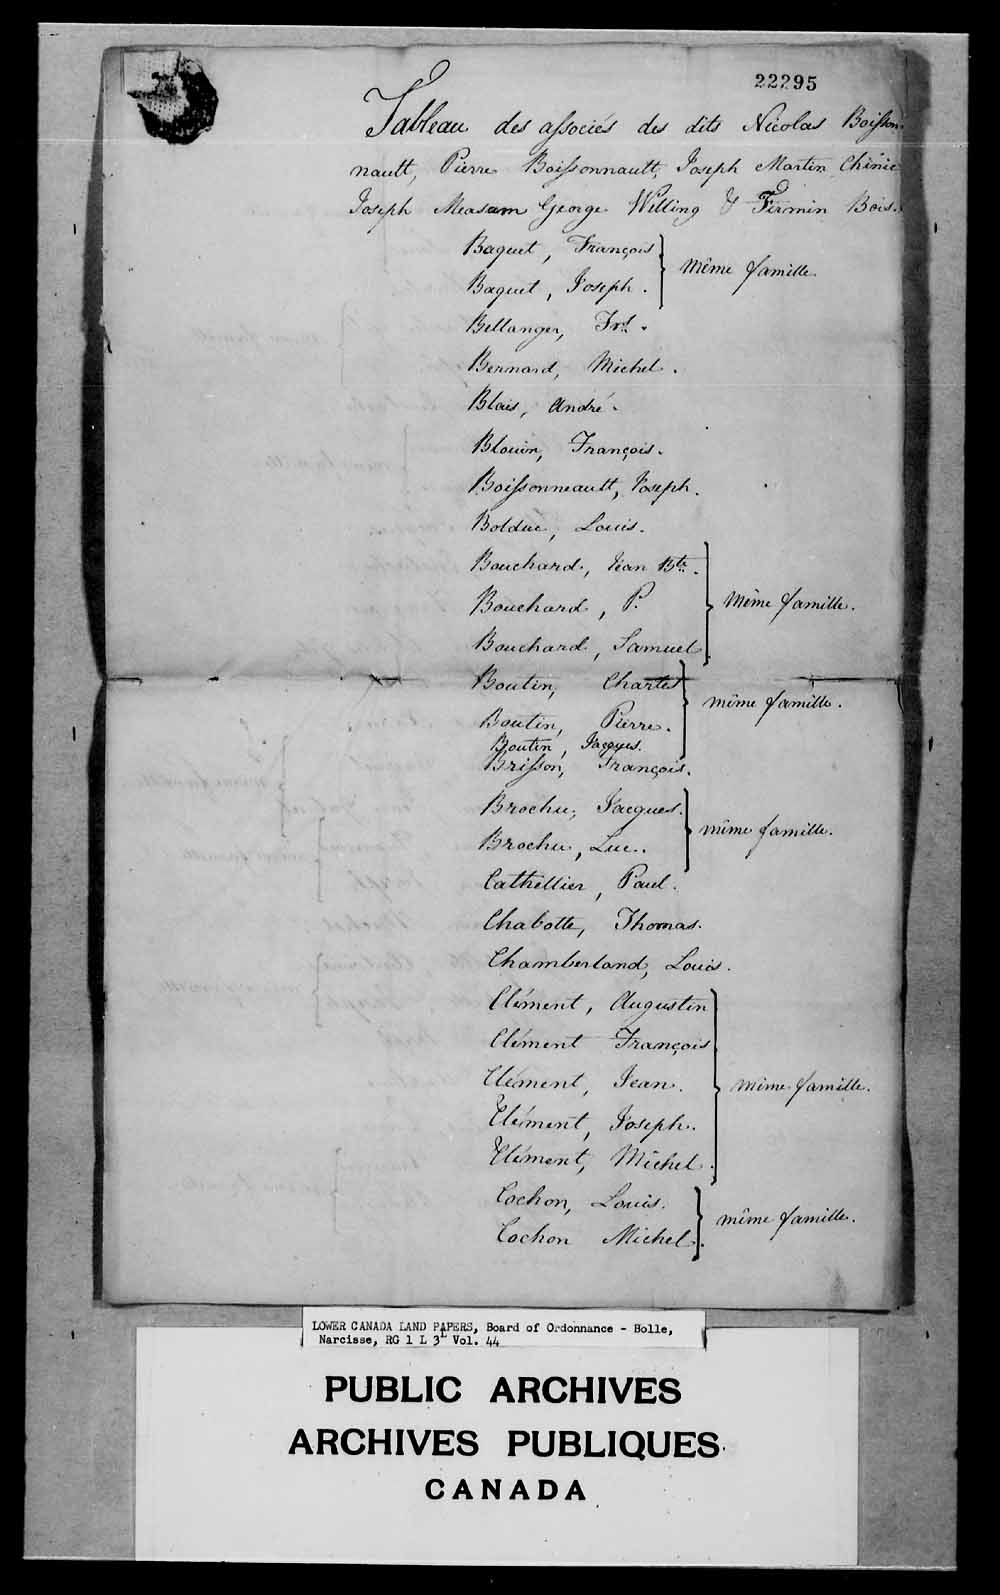 22295
Tableau des associés des dits Nicolas Boisson-
nault, Pierre Boissonnault, Joseph Martin Chinic
Joseph Measam George Willing & Firmin Bois.
Baquet, François
Baquet, Joseph.
Même famille.
Bellanger, Frs.
Bernard, Michel.
Blais, André.
Blouin, François.
Boissonneault, Joseph.
Bolduc, Louis.
Bouchard, Jean Bte.
Bouchard, P.
Bouchard, Samuel
Même famille.
Boutin, Charles
Boutin, Pierre.
Boutin, Jacques.
même famille.
Brisson, François.
Brochu, Jacques.
Brochu, Luc.
même famille.
Cathellier, Paul.
Chabotte, Thomas.
Chamberland, Louis.
Clément, Augustin
Clément François
Clément, Jean.
Clément, Joseph.
Clément, Michel.
même famille.
Cochon, Louis.
Cochon Michel.
même famille.
LOWER CANADA LAND PAPERS, Board of Ordonnance - Bolle,
Narcisse, RG 1 L 3L Vol. 44
PUBLIC ARCHIVES
ARCHIVES PUBLIQUES
CANADA